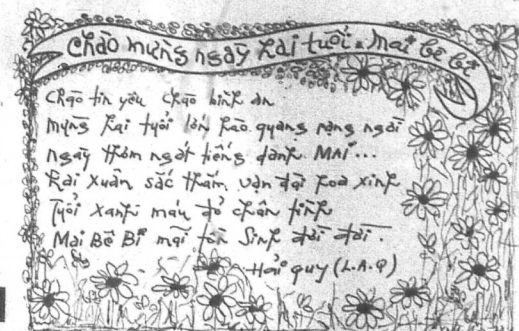 Chào mừng ngày hai tuổi Mai bê bi
Chào tin yêu chào bình an
mừng hai tuổi lớn hào quang rạng ngời
ngày thơm ngát tiếng danh MAI...
hai xuân sắc thắm vạn đại hoa xinh
Tuổi xanh máu đỏ chân tình
Mai Bê Bi mãi Sinh đời đời.
Hải quy (L.A.Q)